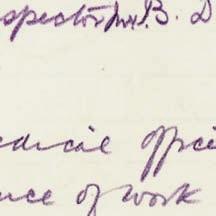 spector for B. D
edical offic
nce of work